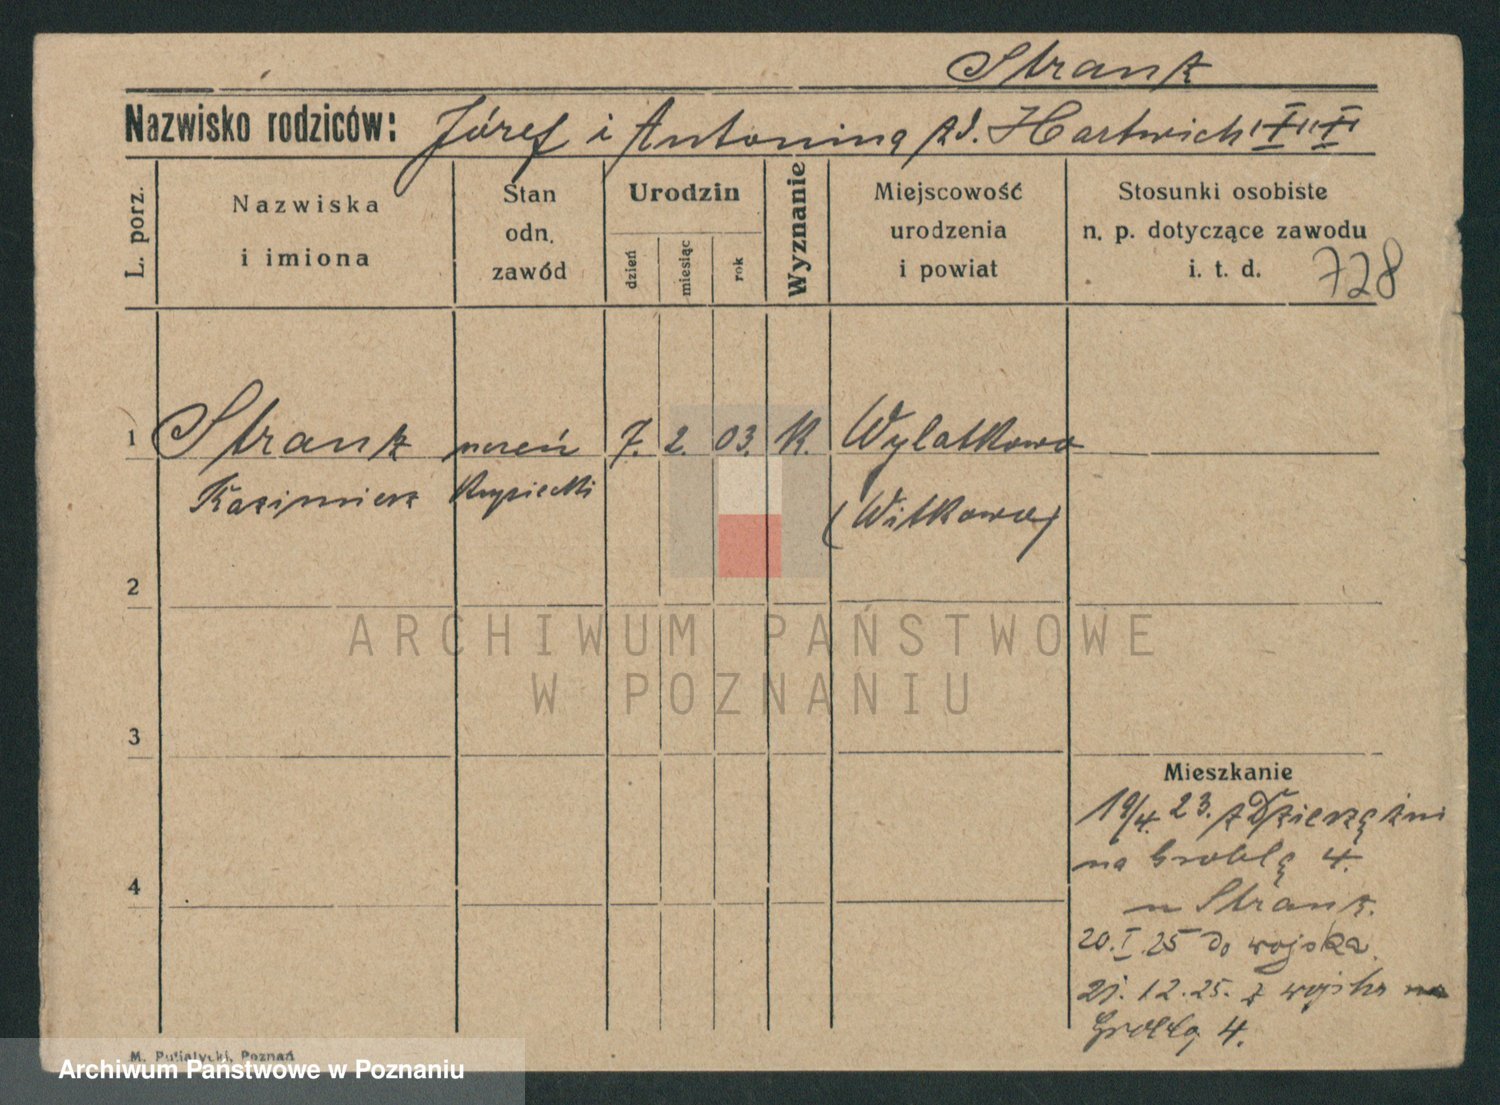 Strank
Nazwisko rodziców: Józef i Antonina zd. Hartwich "I" "I"
L. porz.
Nazwiska
i imiona
Stan
odn.
zawód
Urodzin
dzień
miesiąc
rok
Wyznanie
Miejscowość
urodzenia
i powiat
Stosunki osobiste
n. p. dotyczące zawodu
i. t. d.
728
1 Strank uczeń 7. 2. 03. K. Wylatkowo
Kazimierz kupiecki (Witkowo)
2
3
4
Mieszkanie
19/4. 23. z Dzierzążni
na Groblę 4.
u Strank.
20. I. 25 do wojska.
21. 12. 25. z wojska na
Groblą 4.
M. Putiatycki, Poznań
ARCHIWUM PAŃSTWOWE
W POZNANIU
Archiwum Państwowe w Poznaniu